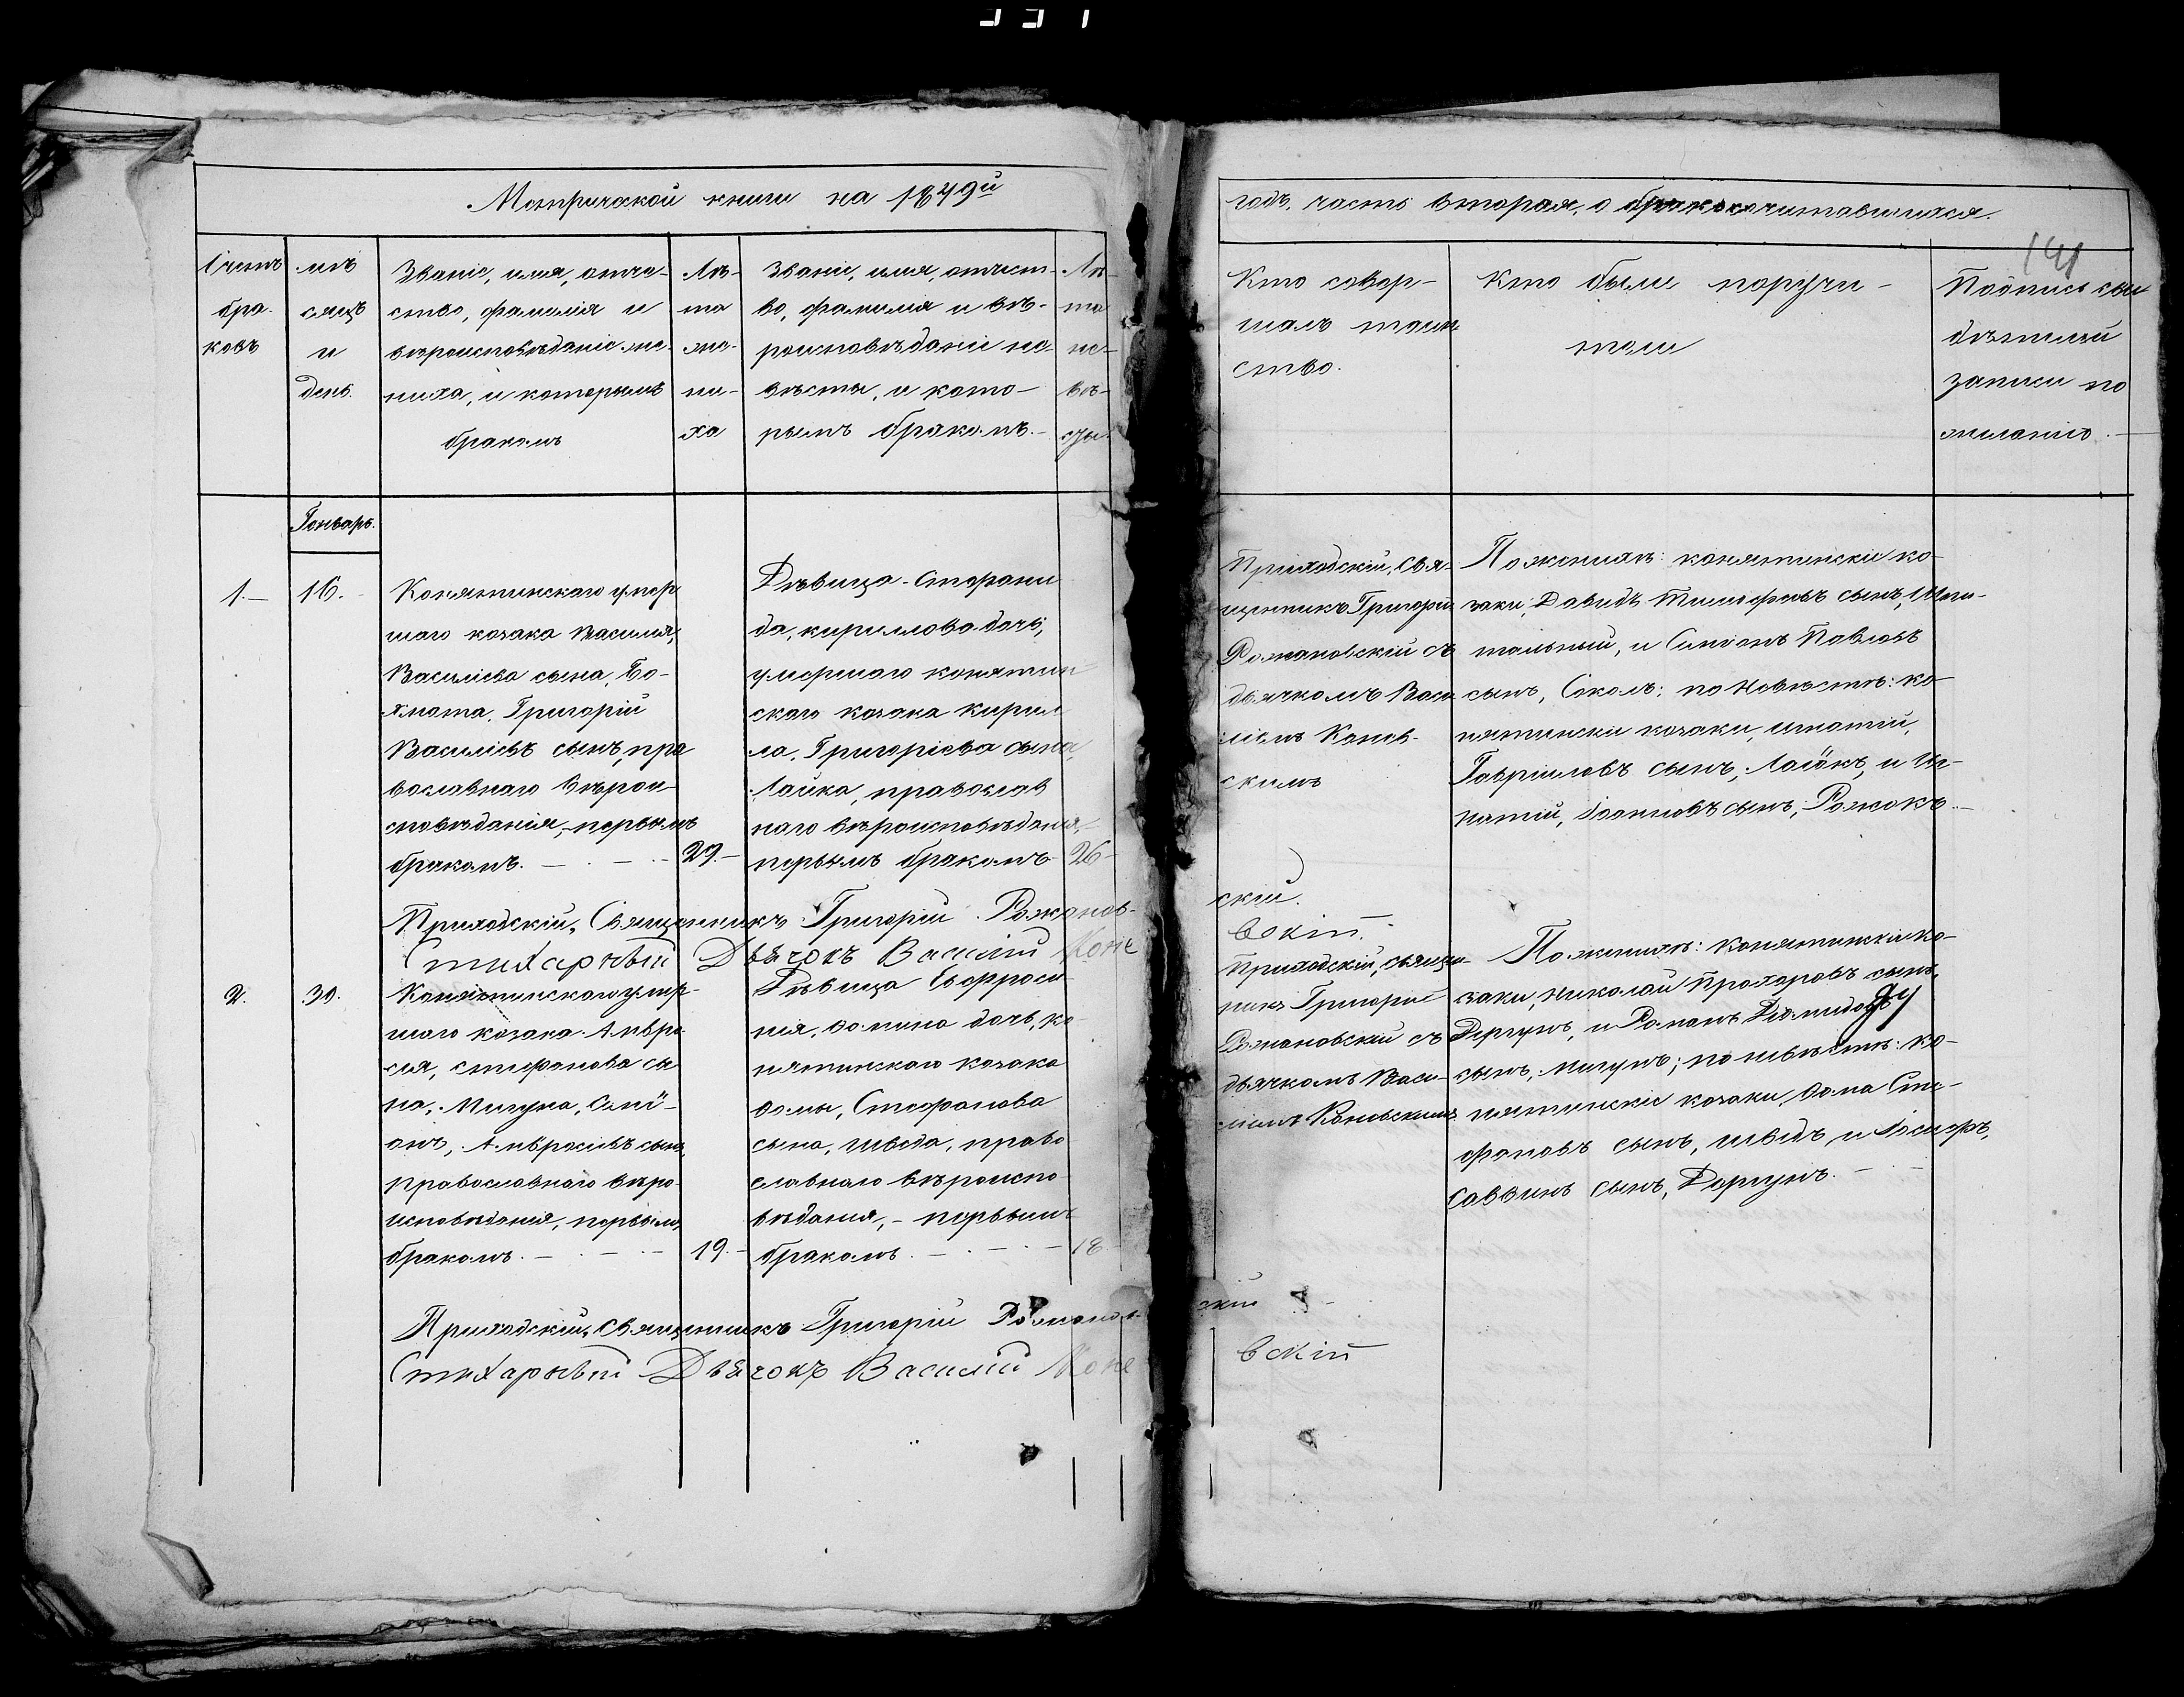 Метрической книги на 1849й
годъ, часть вторая, о бракосочитавшихся.
141
Счетъ
бра-
ковъ
мѣ-
сяцъ
и
день.
Званіе, имя, отче-
ство, фамилія и
вѣроисповѣданіе же-
ниха, и которымъ
бракомъ
Лѣ-
та
же-
ни-
ха
Званіе, имя, отчест-
во, фамилия и вѣ-
роисповѣданіе не-
вѣсты, и кото-
рымъ бракомъ.
Лѣ-
та
не-
вѣ-
сты.
Кто совер-
шалъ таин
ство.
Кто были поручи-
тели
Подпись сви
дѣтелей
записи по
желанію.
Генварь.
1.
16.
Конятинскаго умер
шаго козака Василія,
Василіева сына, Бо-
хмата, Григорій
Василіевъ сынъ, пра
вославнаго вѣрои-
сповѣданія, первымъ
бракомъ.
29.
Дѣвица Стефани
да, кириллова дочь,
умершаго конятин
скаго козака Кирил
ла, Григоріева сына,
Лайка, православ
наго вѣроисповѣданія,
первымъ бракомъ
26
Приходскій, Свя-
щенникъ Григорій
Рожановскій съ
дьячкомъ Васи
ліемъ Конев-
скимъ
По женихѣ: конятинскіе ко-
заки, Давидъ Тимофеевъ сынъ,
тальный, и Симеонъ Павловъ
сынъ, Соколъ: по невѣстѣ: ко
нятинскіи козаки, игнатій,
Гавріиловъ сынъ, Лаіокъ, и Иг-
натій, Іоанновъ сынъ, Рожокъ.
Приходскій, Священникъ Григорій Рожанов-
скій.
Стихарный Дьячокъ Василій Коне
вскій.
2.
30.
Конятинскаго умер-
шаго козака Амвро-
сія, стефанова сы
на, Мигуна, Симе-
онъ, Амвросіевъ сынъ,
православнаго вѣро-
исповѣданія, первымъ
бракомъ.
19.
Дѣвица Евфроси
нія, Ѳомина дочь, ко-
нятинскаго козака
Ѳомы, Стефанова
сына, шведа, право
славнаго вѣроиспо
вѣданія, - первымъ
бракомъ.
18.
Приходскій, священ-
никъ Григорій
Рожановскій съ
дьячкомъ Васи-
ліемъ Коновскимъ
По женихѣ: Конятинскіи ко-
заки, Николай Прохоровъ сынъ,
Дергунъ, и Романъ Діомидовъ
сынъ, Мигунъ; по невѣстѣ: ко-
нятинскіе козаки, Ѳома Сте-
фановъ сынъ, шведъ, и Іосифъ,
Саввинъ сынъ, Дергунъ.
Приходскій, священникъ Григорій Рожанов-
скій
Стихарный Дьячокъ Василій Коне
вскій